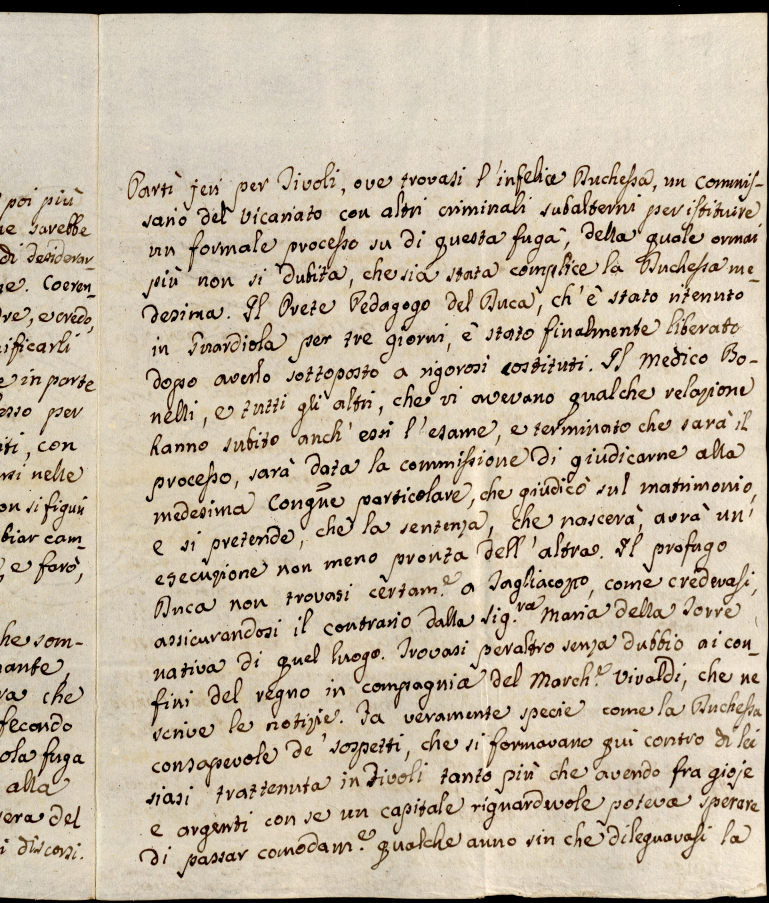 poi più
ue sarebbe
di desiderar-
ge. Coeren-
dre, e credo,
ificarli
e in parte
esso per
ti, con
rsi nelle
on si figuri
biar cam-
, e farò,
he som-
nante,
va che
fecondo
ola fuga
alla
vera del
i discorsi.
Partì jeri per Tivoli, ove trovasi l'infelice Duchessa, un commis-
sario del vicariato con altri criminali subalterni per istituire
un formale processo su di questa fuga, della quale ormai
più non si dubita, che sia stata complice la Duchessa me-
desima. Il Prete Pedagogo del Duca, ch'è stato ritenuto
in Guardiola per tre giorni, è stato finalmente liberato
dopo averlo sottoposto a rigorosi costituti. Il Medico Bo-
nelli, e tutti gli altri, che vi avevano qualche relazione
hanno subito anch'essi l'esame, e terminato che sarà il
processo, sarà data la commissione di giudicarne alla
medesima Congne particolare, che giudicò sul matrimonio,
e si pretende, che la sentenza, che nascerà, avrà un'
esecuzione non meno pronta dell'altra. Il profugo
Duca non trovasi certam.e a Tagliacozzo, come credevasi,
assicurandosi il contrario dalla Sig.ra Maria della Torre
nativa di quel luogo. Trovasi peraltro senza dubbio ai con-
fini del regno in compagnia del March.e Vivaldi, che ne
scrive le notizie. Fa veramente specie come la Duchessa
consapevole de' sospetti, che si formavano qui contro di lei
siasi trattenuta in Tivoli tanto più che avendo fra gioje
e argenti con se un capitale riguardevole poteva sperare
di passar comodam.e qualche anno sin che dileguavasi la